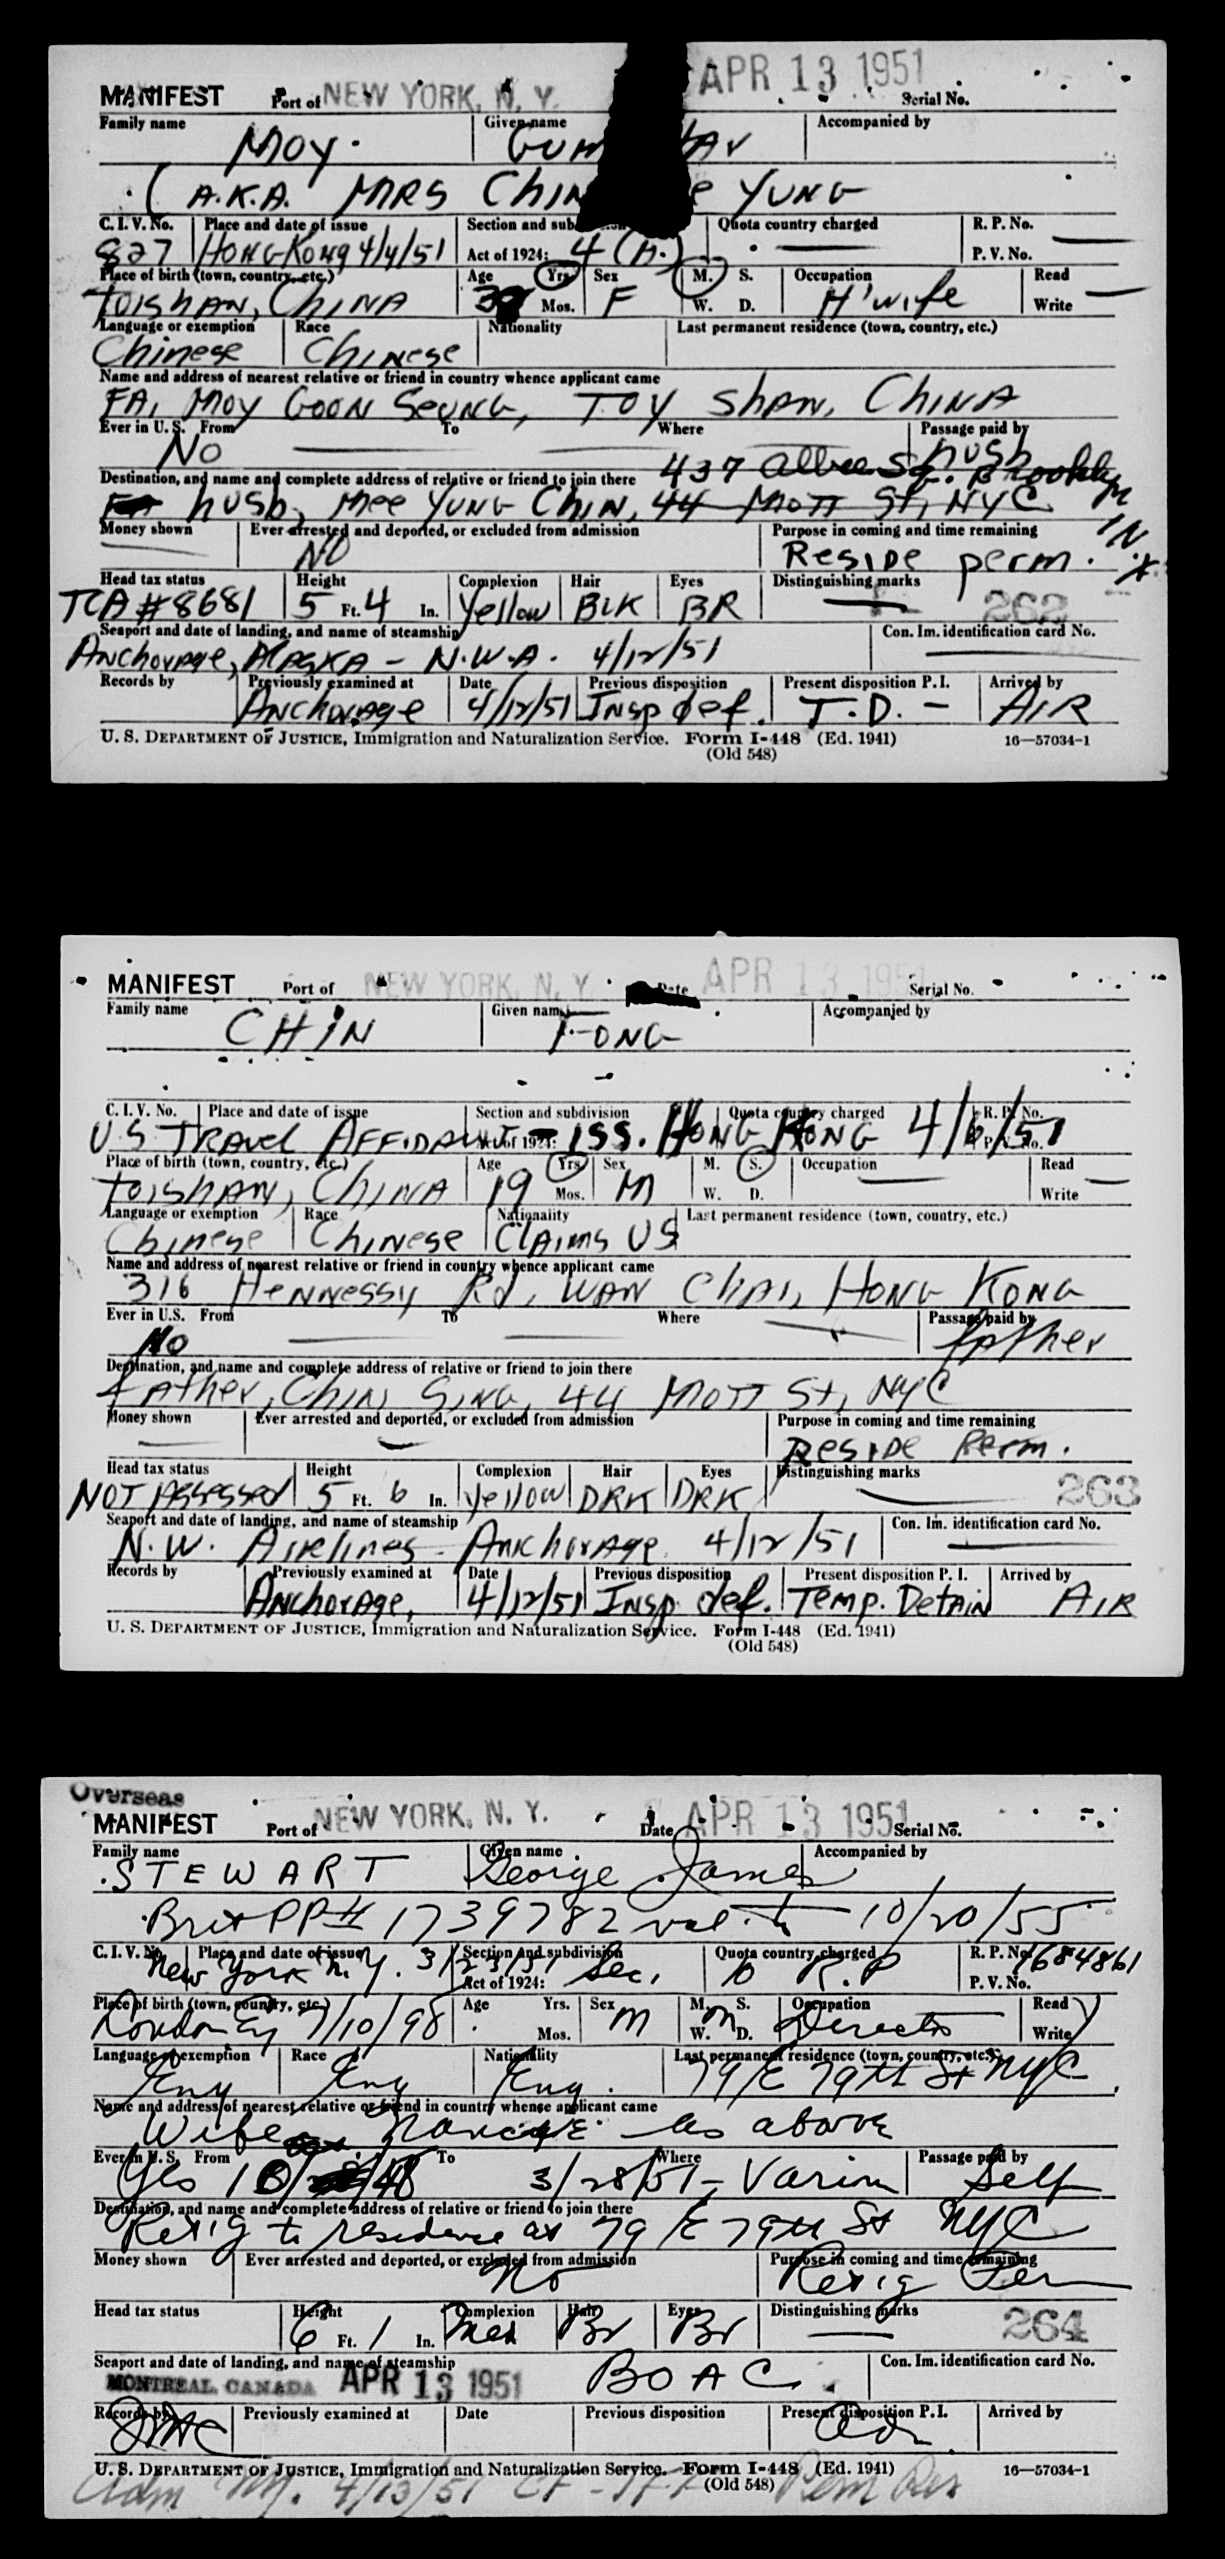 MANIFEST Port of NEW YORK, N. Y. APR 13 1951 Serial No.
Family name Given name Accompanied by
MOY GUM
(A.K.A. MRS CHIN YUNG
C. I. V. No. Place and date of issue Section and Quota country charged R. P. No.
827 HONG KONG 4/4/51 Act of 1924: 4 (A.) — P. V. No. —
Place of birth (town, country, etc.) Age Yrs. Sex M. S. Occupation Read
TOISHAN, CHINA Mos. F W. D. H'wife Write —
Language or exemption Race Nationality Last permanent residence (town, country, etc.)
Chinese Chinese
Name and address of nearest relative or friend in country whence applicant came
FA, MOY GOON SEUNG, TOY SHAN, CHINA
Ever in U. S. From To Where Passage paid by
No — — — husb
437 Albee Sq. Brooklyn
Destination, and name and complete address of relative or friend to join there
husb, Mee YUNG CHIN, 44 MOTT St, NYC N.Y.
Money shown Ever arrested and deported, or excluded from admission Purpose in coming and time remaining
— NO Reside perm.
Head tax status Height Complexion Hair Eyes Distinguishing marks
TCA #8681 5 Ft. 4 In. Yellow BLK BR — 262
Seaport and date of landing, and name of steamship Con. Im. identification card No.
Anchorage, ALASKA - N.W.A. 4/12/51 —
Records by Previously examined at Date Previous disposition Present disposition P. I. Arrived by
Anchorage 4/12/51 Insp def. T.D. - AIR
U. S. DEPARTMENT OF JUSTICE, Immigration and Naturalization Service. Form I-448 (Ed. 1941) 16—57034-1
(Old 548)
MANIFEST Port of NEW YORK, N. Y. Date APR 13 1951 Serial No.
Family name Given name Accompanied by
CHIN FONG
C. I. V. No. Place and date of issue Section and subdivision Quota country charged R. P. No.
U.S TRAVEL AFFIDAVIT - ISS. HONG KONG 4/6/51
Act of 1924: P. V. No.
Place of birth (town, country, etc.) Age Yrs. Sex M. S. Occupation Read
TOISHAN, CHINA 19 Mos. M W. D. — Write —
Language or exemption Race Nationality Last permanent residence (town, country, etc.)
Chinese Chinese Claims US
Name and address of nearest relative or friend in country whence applicant came
316 Hennessy Rd, WAN CHAI, HONG KONG
Ever in U.S. From To Where Passage paid by
No — — — father
Destination, and name and complete address of relative or friend to join there
father, CHIN SING, 44 MOTT St, NYC
Money shown Ever arrested and deported, or excluded from admission Purpose in coming and time remaining
— — Reside Perm.
Head tax status Height Complexion Hair Eyes Distinguishing marks
NOT Assessed 5 Ft. 6 In. Yellow DRK DRK — 263
Seaport and date of landing, and name of steamship Con. Im. identification card No.
N.W. Airlines - Anchorage 4/12/51 —
Records by Previously examined at Date Previous disposition Present disposition P. I. Arrived by
Anchorage, 4/12/51 Insp def. Temp. Detain AIR
U. S. DEPARTMENT OF JUSTICE, Immigration and Naturalization Service. Form I-448 (Ed. 1941)
(Old 548)
Overseas
MANIFEST Port of NEW YORK, N. Y. Date APR 13 1951 Serial No.
Family name Given name Accompanied by
STEWART George James
Brit PP# 1739782 val. to 10/20/55
C. I. V. No. Place and date of issue Section and subdivision Quota country charged R. P. No. 1684861
New York N.Y. 3/23/51 Act of 1924: Sec. R.P P. V. No.
Place of birth (town, country, etc.) Age Yrs. Sex M. S. Occupation Read
London Eng 7/10/98 Mos. M W. M D. Director Write
Language or exemption Race Nationality Last permanent residence (town, country, etc.)
Eng Eng Eng. 79 E 79th St NYC
Name and address of nearest relative or friend in country whence applicant came
Wife as above
Ever in U. S. From To Where Passage paid by
Yes 3/28/51 - Various Self
Destination, and name and complete address of relative or friend to join there
Retig to residence at 79 E 79th St NYC
Money shown Ever arrested and deported, or excluded from admission Purpose in coming and time remaining
No Retig Per
Head tax status Height Complexion Hair Eyes Distinguishing marks
6 Ft. 1 In. Med Br Br — 264
Seaport and date of landing, and name of steamship Con. Im. identification card No.
MONTREAL, CANADA APR 13 1951 BOAC.
Records by Previously examined at Date Previous disposition Present disposition P. I. Arrived by
U. S. DEPARTMENT OF JUSTICE, Immigration and Naturalization Service. Form I-448 (Ed. 1941) 16—57034-1
(Old 548)
Adm 4/13/51 Perm Res